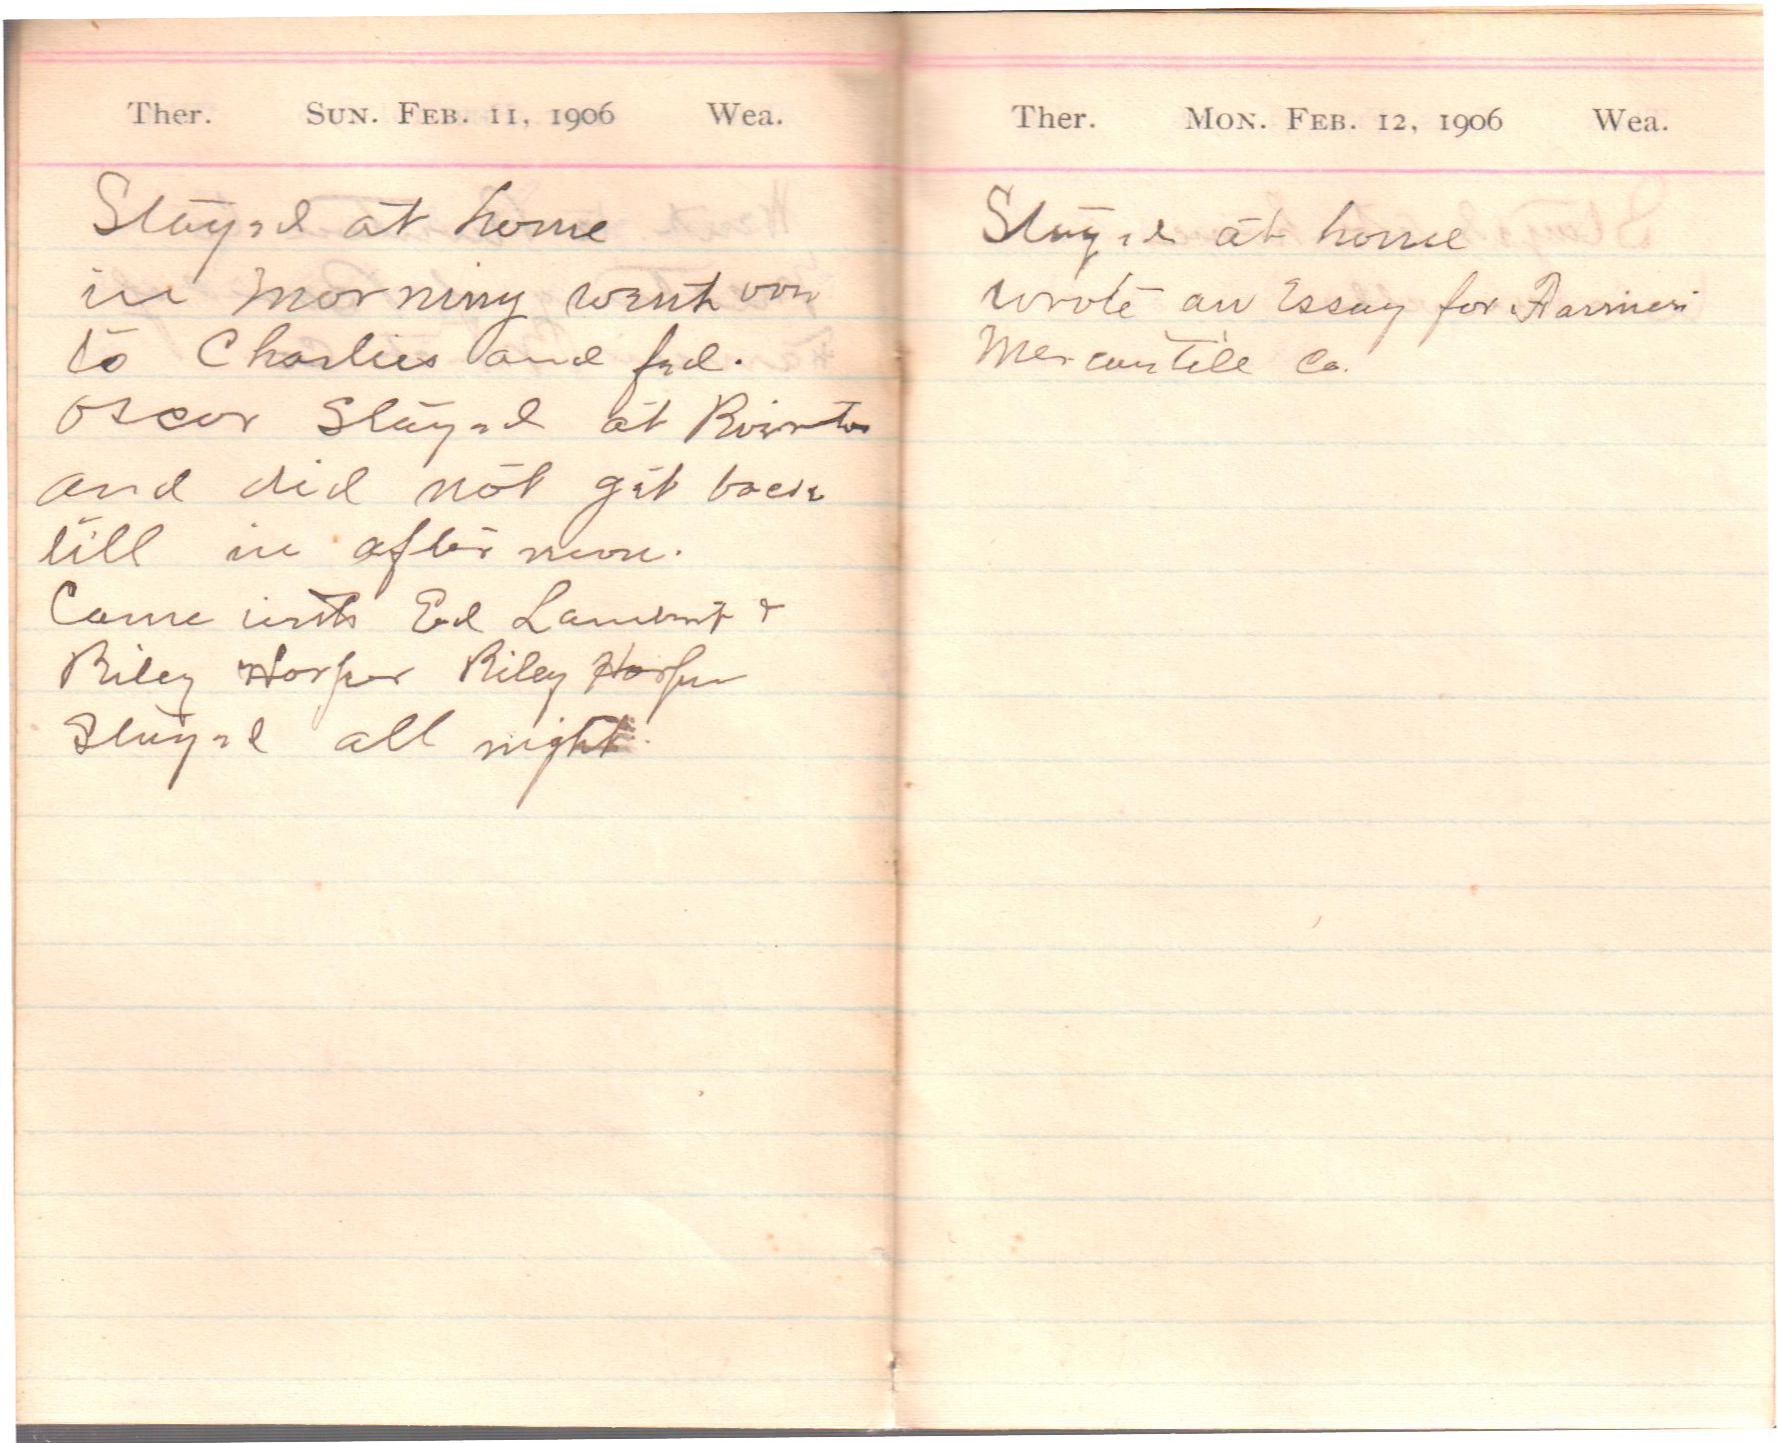 Ther. Sun. Feb. 11, 1906 Wea.
Stayed at home
in morning went over
to Charlies and fed.
Oscar Stayed at Riverton
and did not get back
till in after noon.
Came with Ed &
Riley Harper Riley Harper
Stayed all night.
Ther. Mon. Feb. 12, 1906 Wea.
Stayed at home
wrote an Essay for Farmers
Mercantile Co.